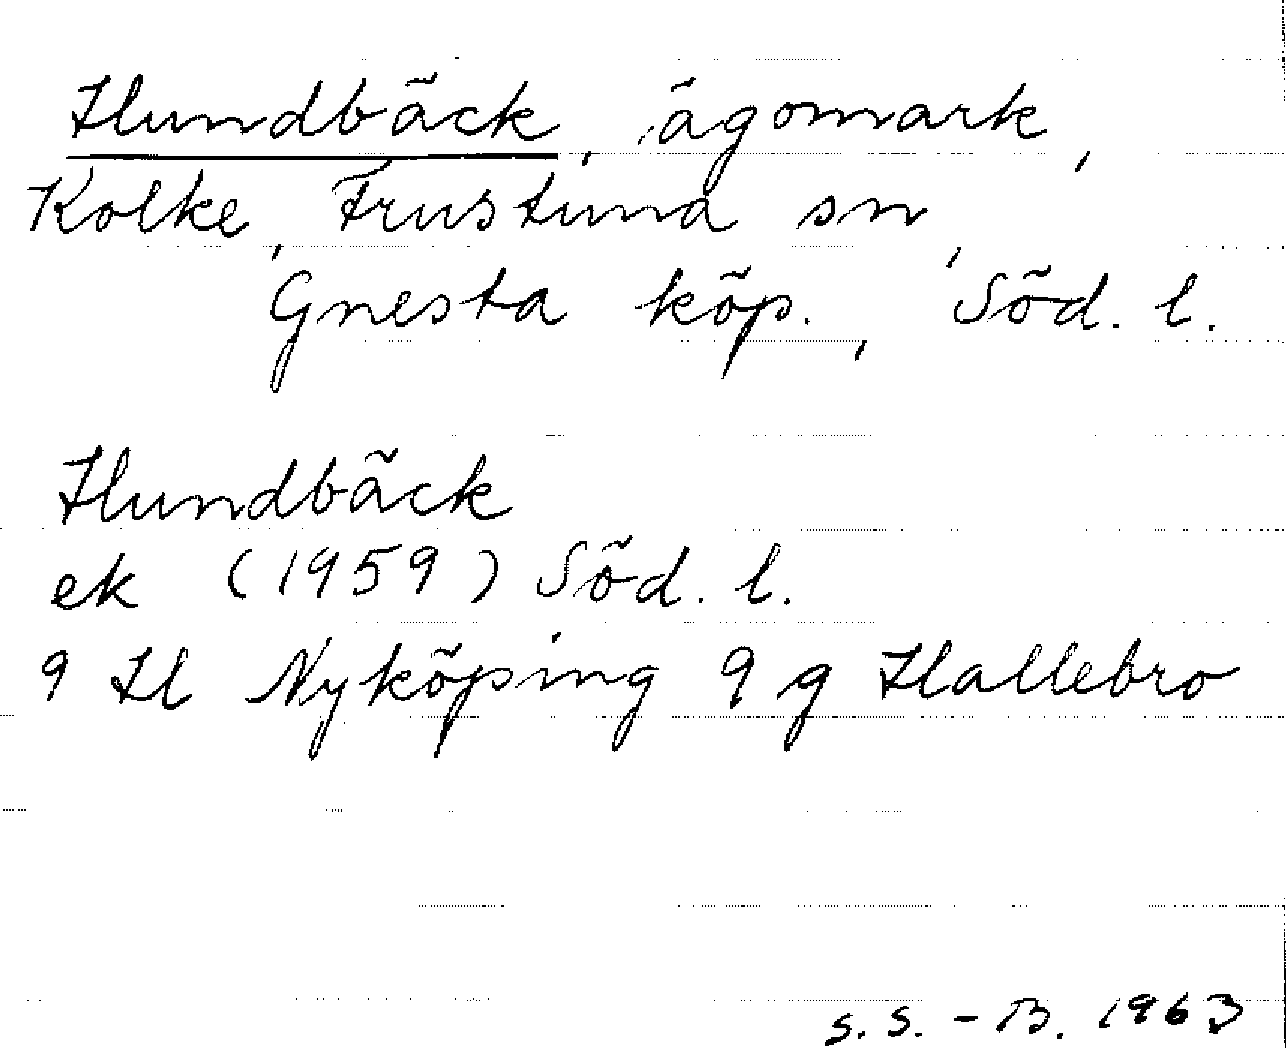 Hundbäck, ägomark,
Kolke, Frustuna sn,
Gnesta köp., Söd. l.
Hundbäck
ek (1959) Söd. l.
9 H Nyköping 9 g Hallebro
S. S. - B. 1963